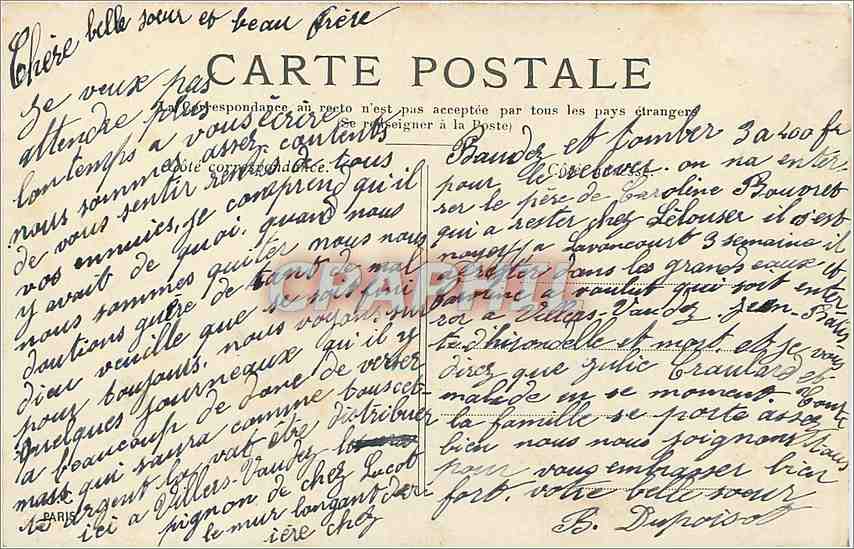 Chère belle sœur et beau frère
CARTE POSTALE
La Correspondance au recto n'est pas acceptée par tous les pays étrangers
(Se renseigner à la Poste)
Côté correspondance.
Côté adresse.
Je veux pas
attendre plus
lontemps a vous écrire
nous sommes assez contents
de vous sentir remis de tous
vos ennuies, je comprend qu'il
y avait de quoi, quand nous
nous sommes quiter nous nous
doutions guère de tant de mal
dieu veuille que se soit fini
pour toujours, nous voyons sur
quelques journeaux qu'il y
a beaucoup de dons de verser
mais qui saura comme tous cet
argent la vat être distribuer
ici a Villers-Vaudez le
pignon de chez Jacot
le mur longant derr
ière chez
PARIS
Baudez et tomber 3 a 400 fr
pour le relever. on na enter-
rer le père de Caroline Bouvret
qui a rester chez Lélouser il s'est
noyer a Lavoncourt 3 semaine il
a rester dans les grandes eaux et
comme a voulut qui soit enter-
rer a Villers-Vaudez Jean-Baptis
te d'hisondelle et mort. et je vous
direz que Julie Traulard et
malade en se moment. Toute
la famille se porte assez
bien nous nous joignons tous
pour vous embrasser bien
fort. votre belle sœur
B. Dupoisot
CPAPHIL